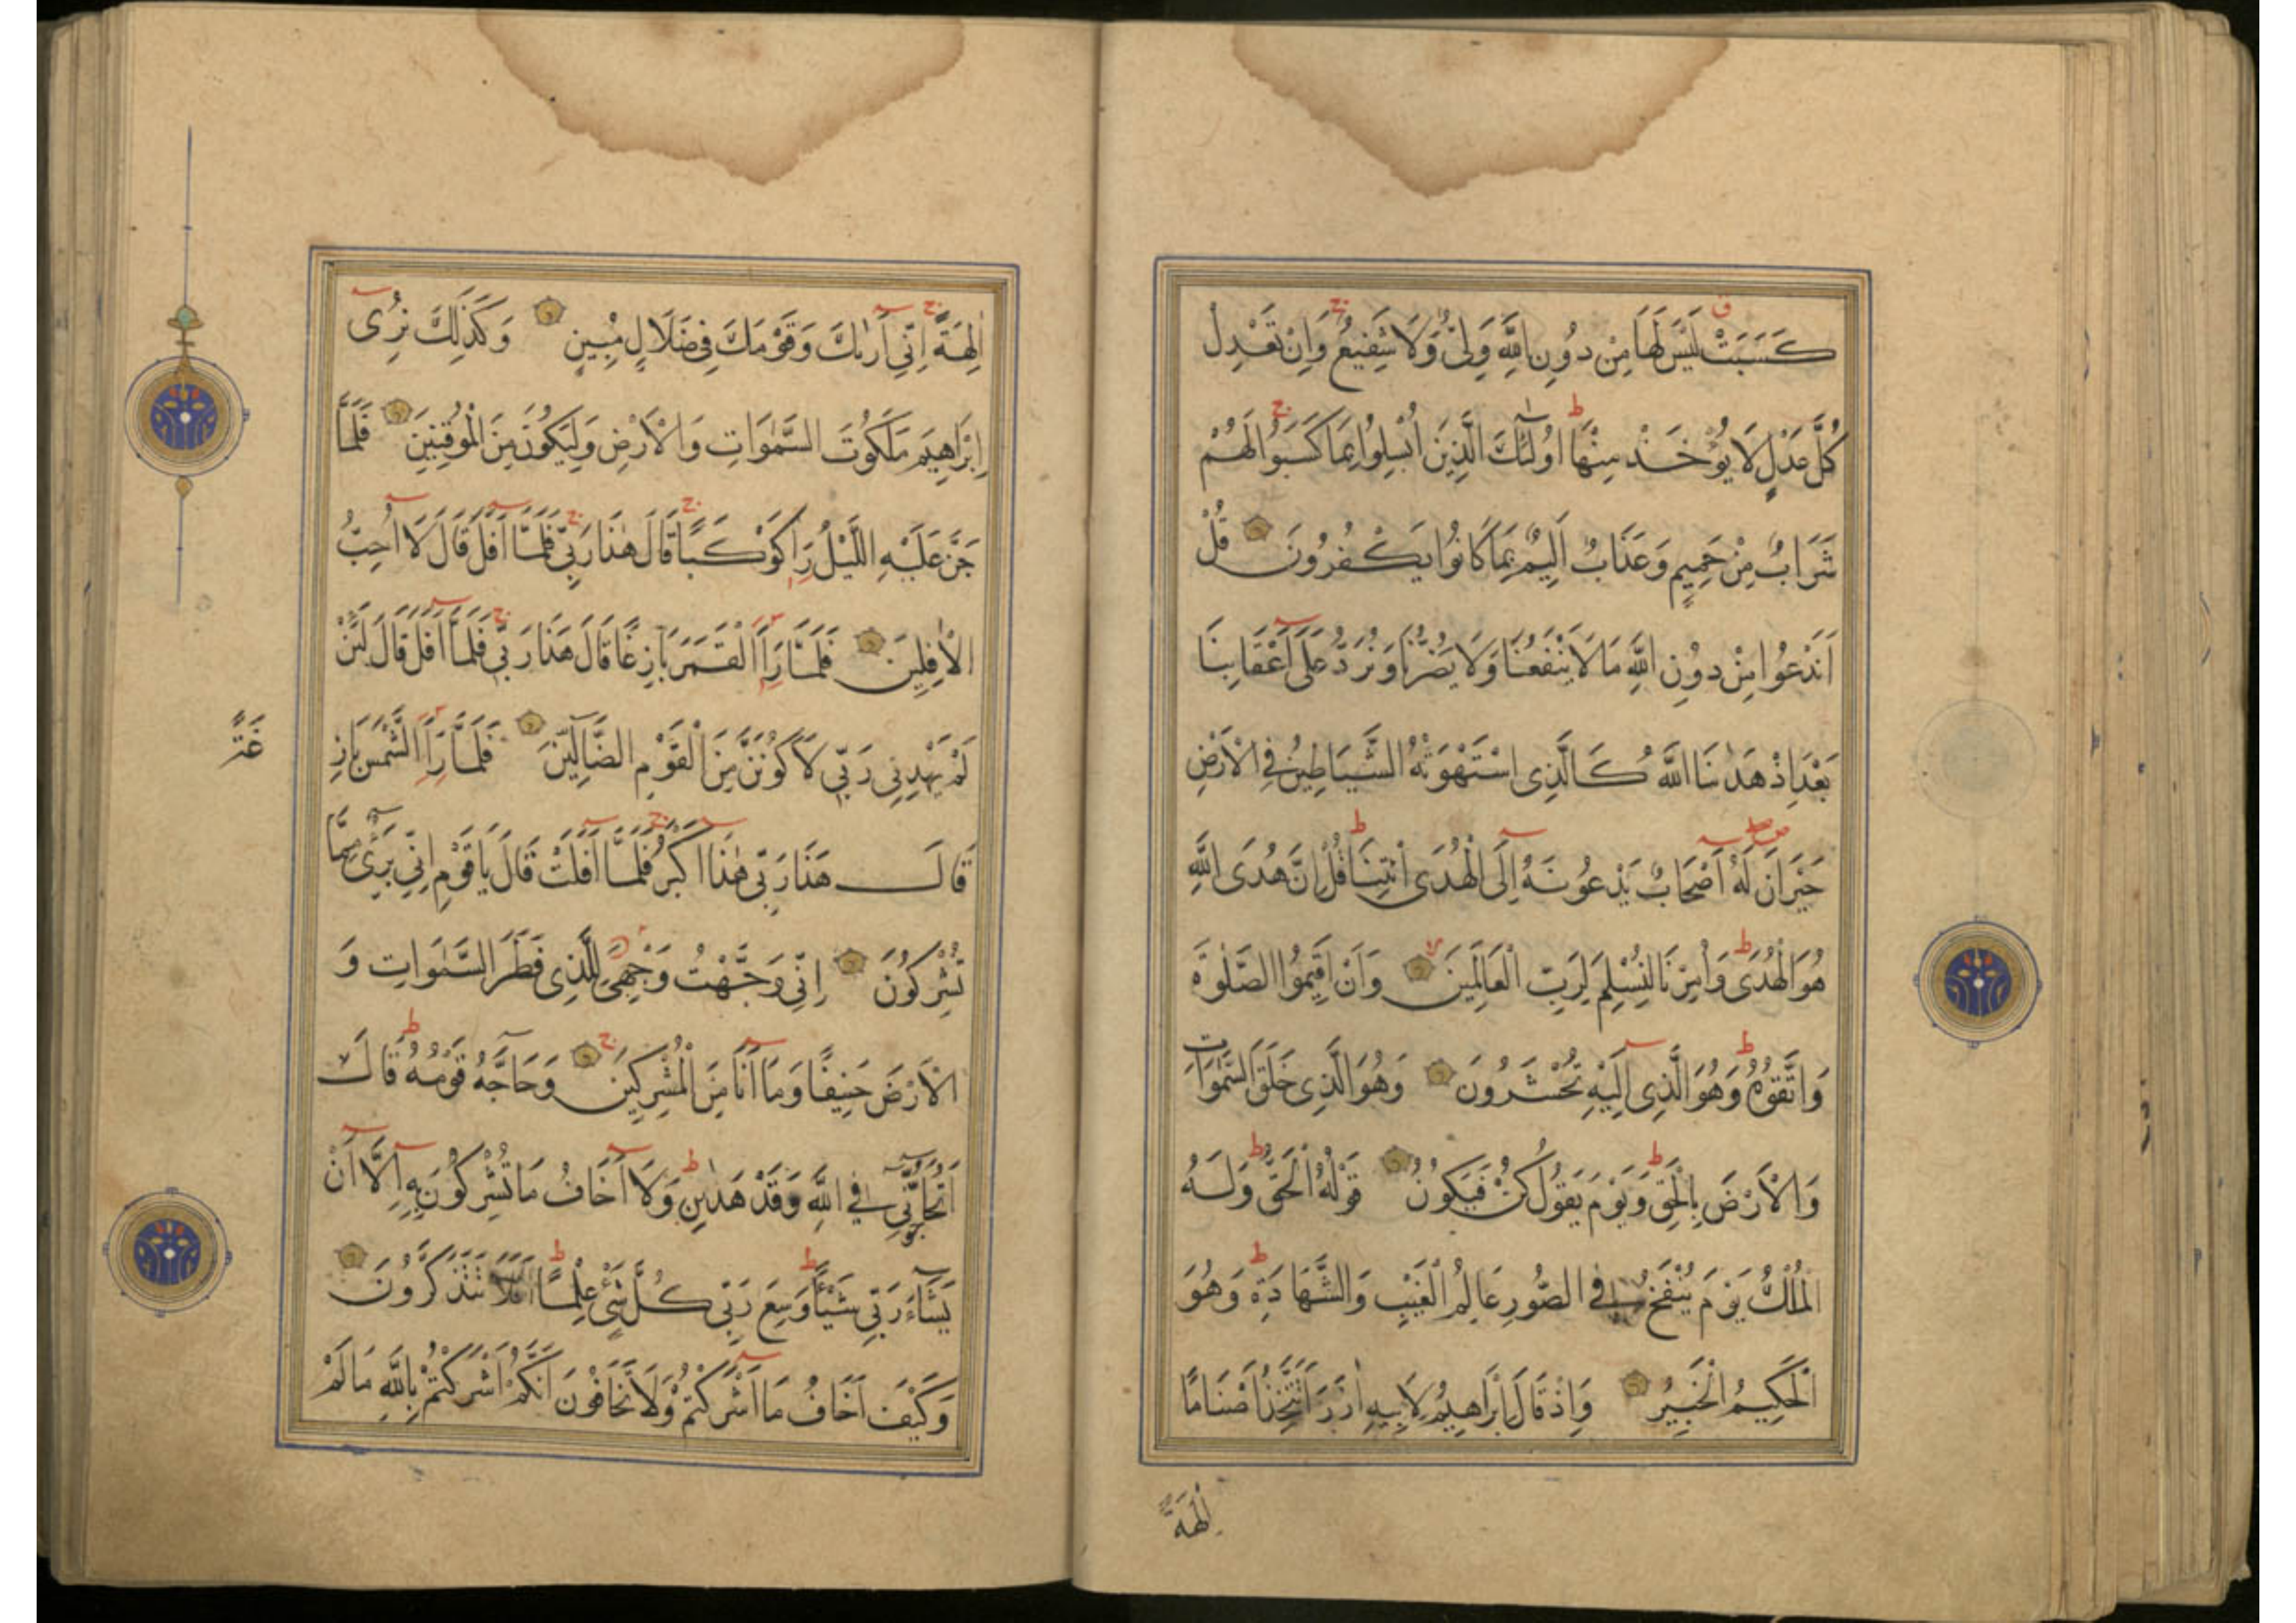 كَسَبَتْ لَيْسَ لَهَا مِنْ دُونِ اللَّهِ وَلِيٌّ وَلَا شَفِيعٌ وَإِنْ تَعْدِلْ
كُلَّ عَدْلٍ لَا يُؤْخَذْ مِنْهَا اُولٰئِكَ الَّذِينَ اُبْسِلُوا بِمَا كَسَبُوا لَهُمْ
شَرَابٌ مِنْ حَمِيمٍ وَعَذَابٌ اَلِيمٌ بِمَا كَانُوا يَكْفُرُونَ قُلْ
اَنَدْعُوا مِنْ دُونِ اللَّهِ مَا لَا يَنْفَعُنَا وَلَا يَضُرُّنَا وَنُرَدُّ عَلَى اَعْقَابِنَا
بَعْدَ اِذْ هَدٰنَا اللَّهُ كَالَّذِى اسْتَهْوَتْهُ الشَّيَاطِينُ فِى الْاَرْضِ
حَيْرَانَ لَهُ اَصْحَابٌ يَدْعُونَهُ اِلَى الْهُدَى ائْتِنَا قُلْ اِنَّ هُدَى اللَّهِ
هُوَ الْهُدَى وَاُمِرْنَا لِنُسْلِمَ لِرَبِّ الْعَالَمِينَ وَاَنْ اَقِيمُوا الصَّلٰوةَ
وَاتَّقُوهُ وَهُوَ الَّذِى اِلَيْهِ تُحْشَرُونَ وَهُوَ الَّذِى خَلَقَ السَّمٰوَاتِ
وَالْاَرْضَ بِالْحَقِّ وَيَوْمَ يَقُولُ كُنْ فَيَكُونُ قَوْلُهُ الْحَقُّ وَلَهُ
الْمُلْكُ يَوْمَ يُنْفَخُ فِى الصُّورِ عَالِمُ الْغَيْبِ وَالشَّهَادَةِ وَهُوَ
الْحَكِيمُ الْخَبِيرُ وَاِذْ قَالَ اِبْرَاهِيمُ لِاَبِيهِ اٰزَرَ اَتَتَّخِذُ اَصْنَامًا
اٰلِهَةً
اٰلِهَةً اِنِّى اَرٰيكَ وَقَوْمَكَ فِى ضَلَالٍ مُبِينٍ وَكَذٰلِكَ نُرِى
اِبْرَاهِيمَ مَلَكُوتَ السَّمٰوَاتِ وَالْاَرْضِ وَلِيَكُونَ مِنَ الْمُوقِنِينَ فَلَمَّا
جَنَّ عَلَيْهِ اللَّيْلُ رَاٰ كَوْكَبًا قَالَ هٰذَا رَبِّى فَلَمَّا اَفَلَ قَالَ لَا اُحِبُّ
الْاٰفِلِينَ فَلَمَّا رَاَ الْقَمَرَ بَازِغًا قَالَ هَذَا رَبِّى فَلَمَّا اَفَلَ قَالَ لَئِنْ
لَمْ يَهْدِنِى رَبِّى لَاَكُونَنَّ مِنَ الْقَوْمِ الضَّالِّينَ فَلَمَّا رَاَ الشَّمْسَ بَازِ
غَةً
قَالَ هَذَا رَبِّى هٰذَا اَكْبَرُ فَلَمَّا اَفَلَتْ قَالَ يَا قَوْمِ اِنِّى بَرِىءٌ مِمَّا
تُشْرِكُونَ اِنِّى وَجَّهْتُ وَجْهِىَ لِلَّذِى فَطَرَ السَّمٰوَاتِ وَ
الْاَرْضَ حَنِيفًا وَمَا اَنَا مِنَ الْمُشْرِكِينَ وَحَاجَّهُ قَوْمُهُ قَالَ
اَتُحَاجُّونِّى فِى اللَّهِ وَقَدْ هَدٰينِ وَلَا اَخَافُ مَا تُشْرِكُونَ بِهِ اِلَّا اَنْ
يَشَاءَ رَبِّى شَيْئًا وَسِعَ رَبِّى كُلَّ شَىْءٍ عِلْمًا اَفَلَا تَتَذَكَّرُونَ
وَكَيْفَ اَخَافُ مَا اَشْرَكْتُمْ وَلَا تَخَافُونَ اَنَّكُمْ اَشْرَكْتُمْ بِاللَّهِ مَا لَمْ